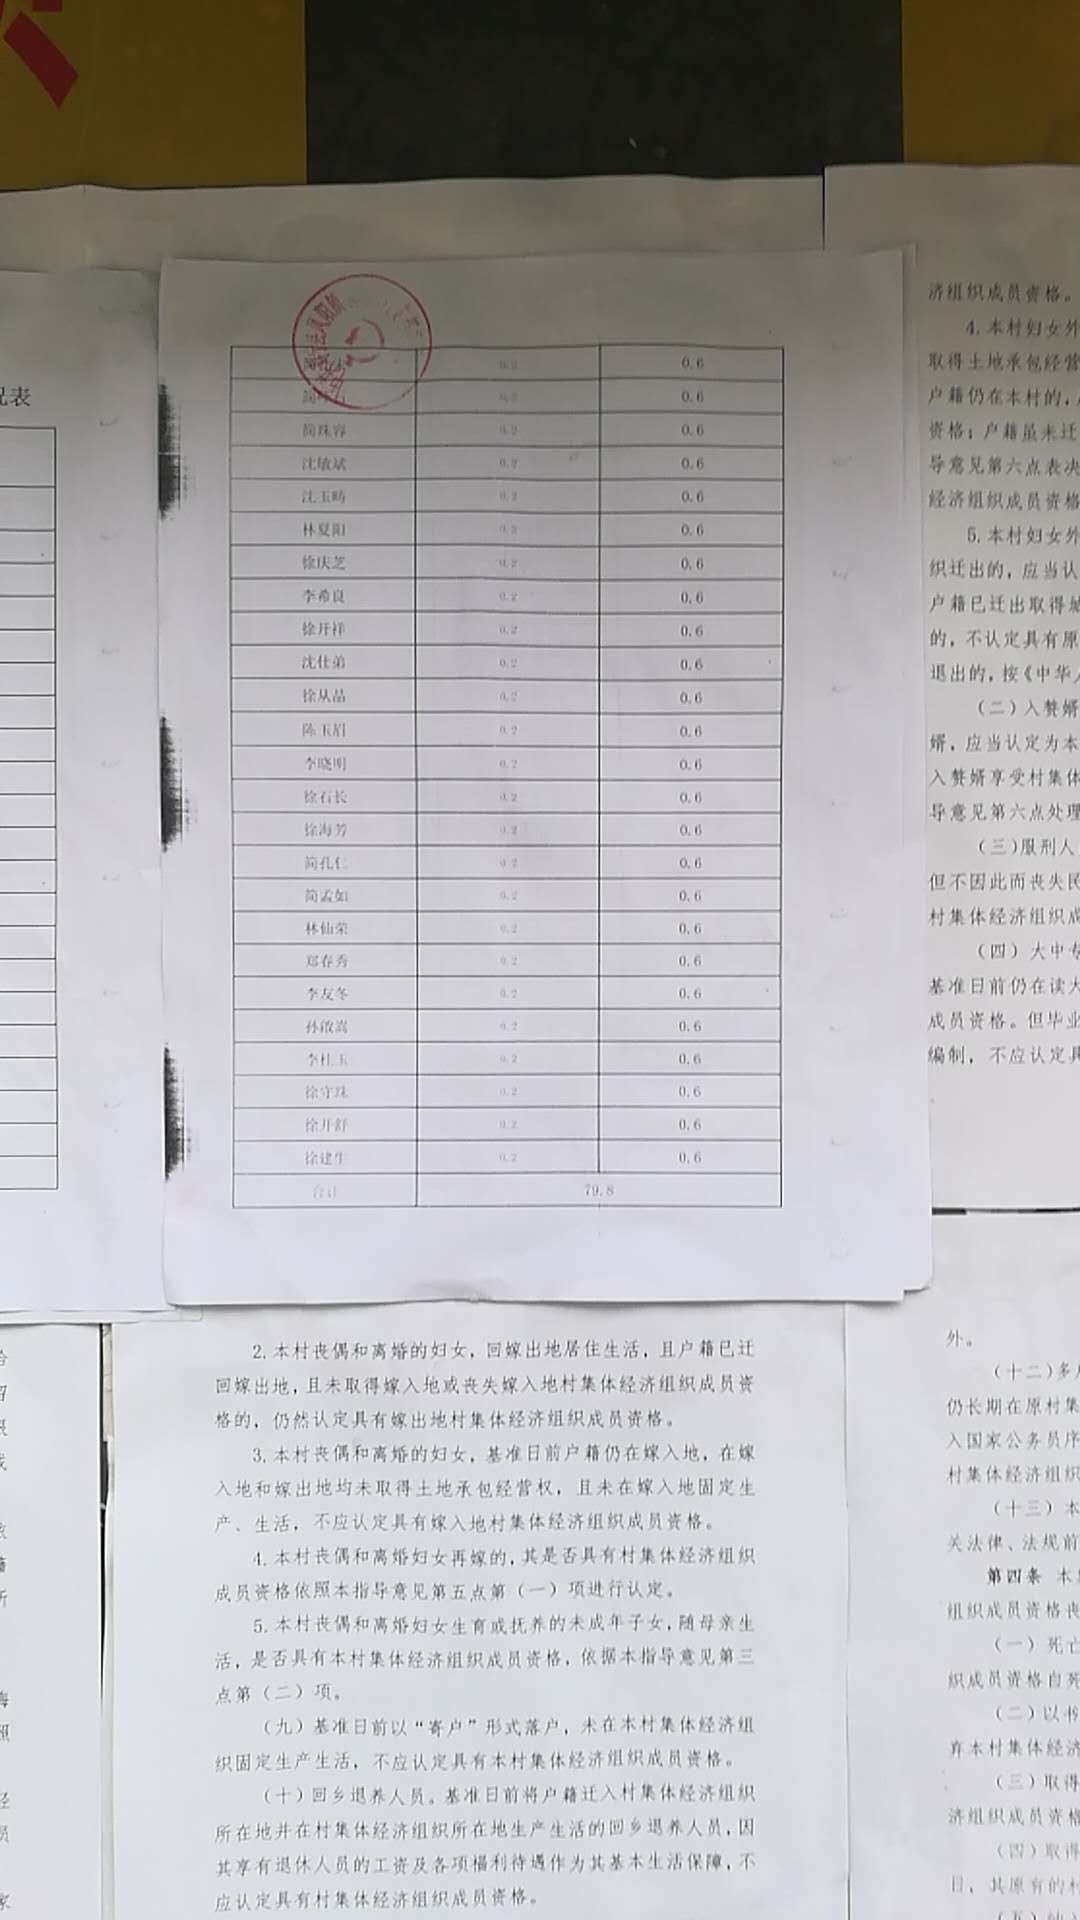 况表
0.2 0.6
0.2 0.6
简珠容 0.2 0.6
沈敏斌 0.2 0.6
沈玉畴 0.2 0.6
林夏阳 0.2 0.6
徐庆芝 0.2 0.6
李希良 0.2 0.6
徐开祥 0.2 0.6
沈仕弟 0.2 0.6
徐从品 0.2 0.6
陈玉眉 0.2 0.6
李晓明 0.2 0.6
徐石长 0.2 0.6
徐海芳 0.2 0.6
简孔仁 0.2 0.6
简孟如 0.2 0.6
林仙荣 0.2 0.6
郑春秀 0.2 0.6
李友冬 0.2 0.6
孙啟嵩 0.2 0.6
李桂玉 0.2 0.6
徐守珠 0.2 0.6
徐开舒 0.2 0.6
徐建生 0.2 0.6
合计 79.8
济组织成员资格。
4.本村妇女外
取得土地承包经营
户籍仍在本村的，
资格；户籍虽未迁
导意见第六点表决
经济组织成员资格
5.本村妇女外
织迁出的，应当认
户籍已迁出取得城
的，不认定具有原
退出的，按《中华人
（二）入赘婿
婿，应当认定为本
入赘婿享受村集体
导意见第六点处理
（三）服刑人
但不因此而丧失民
村集体经济组织成
（四）大中专
基准日前仍在读大
成员资格。但毕业
编制，不应认定具
2.本村丧偶和离婚的妇女，回嫁出地居住生活，且户籍已迁
回嫁出地，且未取得嫁入地或丧失嫁入地村集体经济组织成员资
格的，仍然认定具有嫁出地村集体经济组织成员资格。
3.本村丧偶和离婚的妇女，基准日前户籍仍在嫁入地，在嫁
入地和嫁出地均未取得土地承包经营权，且未在嫁入地固定生
产、生活，不应认定具有嫁入地村集体经济组织成员资格。
4.本村丧偶和离婚妇女再嫁的，其是否具有村集体经济组织
成员资格依照本指导意见第五点第（一）项进行认定。
5.本村丧偶和离婚妇女生育或抚养的未成年子女，随母亲生
活，是否具有本村集体经济组织成员资格，依据本指导意见第三
点第（二）项。
（九）基准日前以“寄户”形式落户，未在本村集体经济组
织固定生产生活，不应认定具有本村集体经济组织成员资格。
（十）回乡退养人员。基准日前将户籍迁入村集体经济组织
所在地并在村集体经济组织所在地生产生活的回乡退养人员，因
其享有退休人员的工资及各项福利待遇作为其基本生活保障，不
应认定具有村集体经济组织成员资格。
外。
（十二）多
仍长期在原村集
入国家公务员序
村集体经济组织
（十三）本
关法律、法规前
第四条 本
组织成员资格丧
（一）死亡
织成员资格自死
（二）以书
弃本村集体经济
（三）取得
济组织成员资格
（四）取得
目，其原有的村